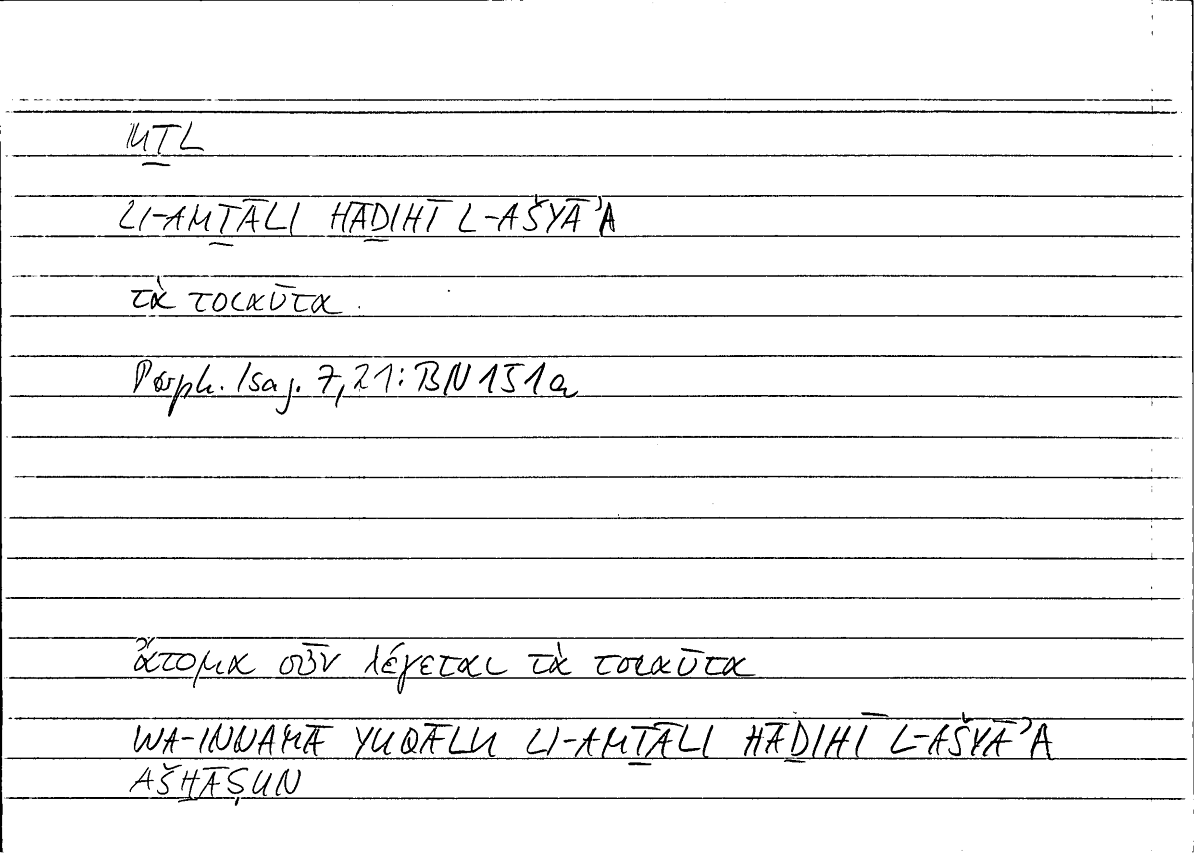 MṮL
LI-AMṮĀLI HĀḎIHĪ L-AŠYĀʾA
τὰ τοιαῦτα.
Porph. Isag. 7,21: BN 151a
ἄτομα οὖν λέγεται τὰ τοιαῦτα
WA-INNAMĀ YUQĀLU LI-AMṮĀLI HĀḎIHĪ L-AŠYĀʾA
AŠḪĀṢUN